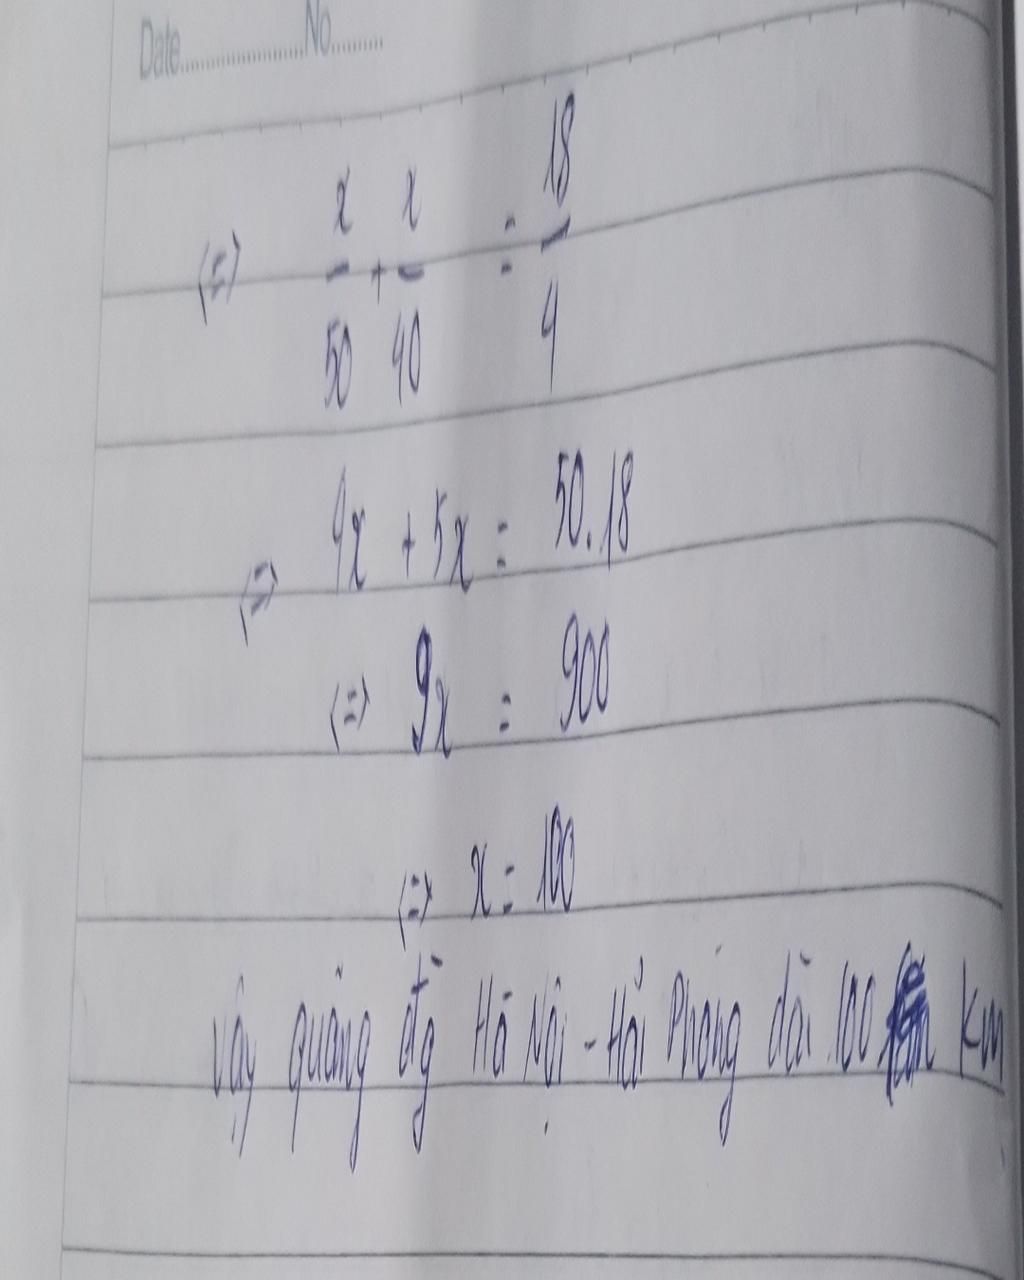 Date.....................No..........
<=> x/50 + x/40 = 18/4
<=> 4x + 5x = 50.18
<=> 9x = 900
<=> x = 100
Vậy quãng đg Hà Nội - Hải Phòng dài 100 km